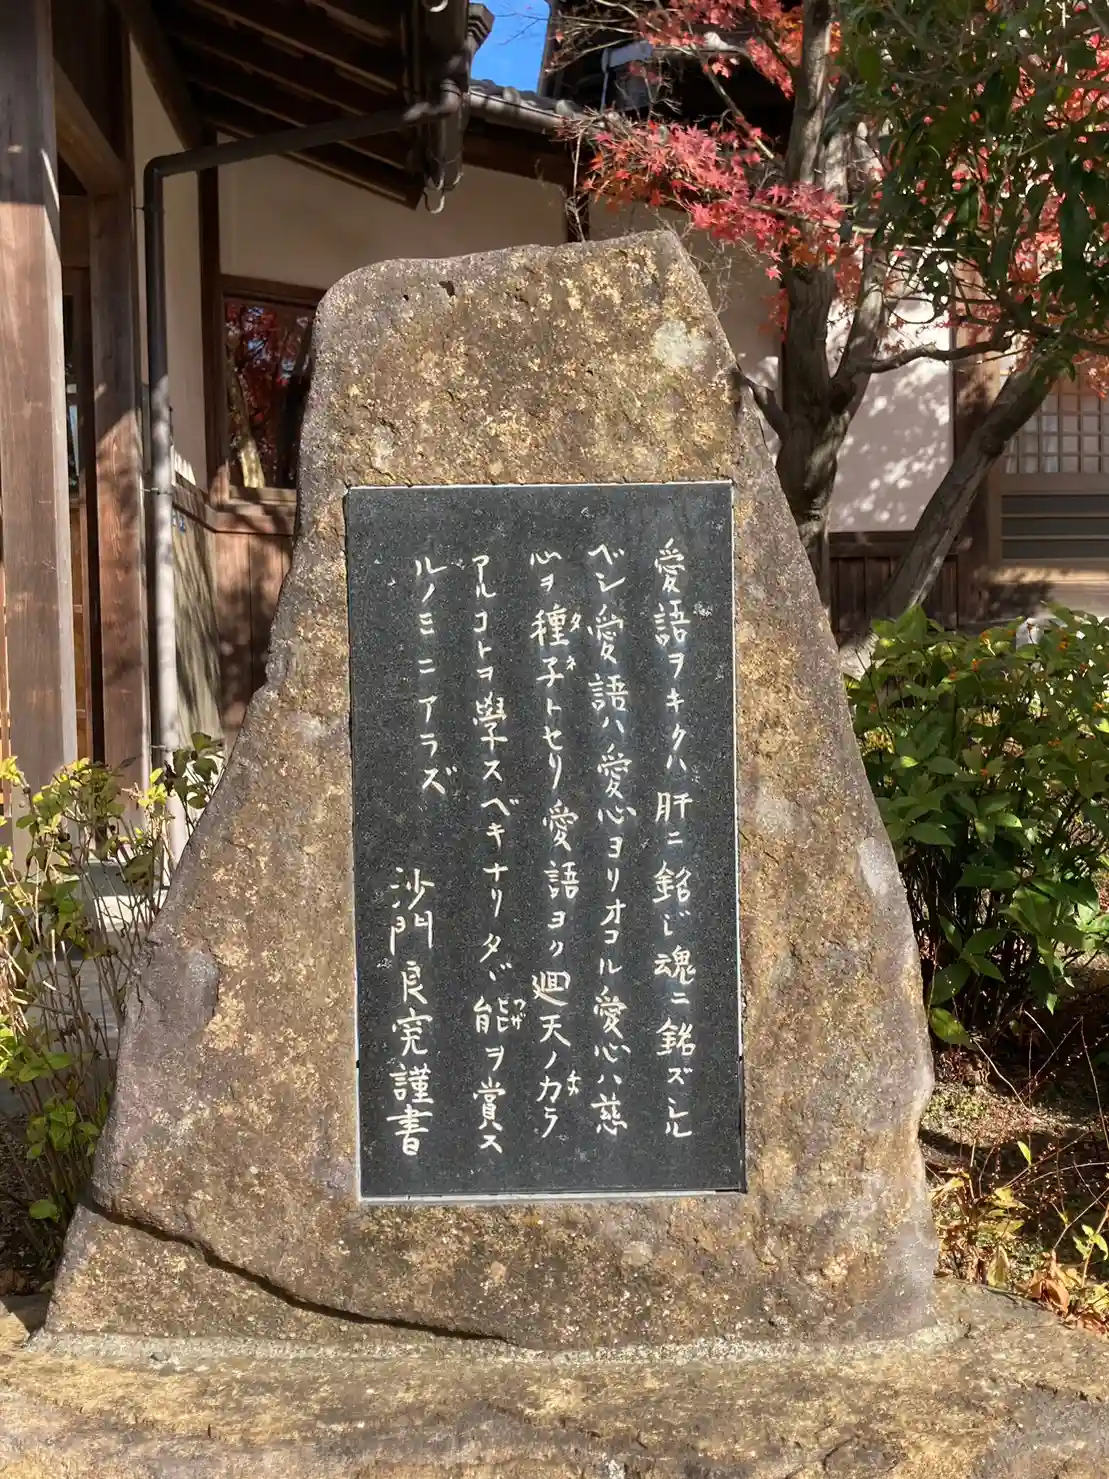 愛語ヲキクハ肝ニ銘じ魂ニ銘ズシル
ベシ愛語ハ愛心ヨリオコル愛心ハ慈
心ヲ種子トセリ愛語ヨク廻天ノカラ
タネ
チカ
アルコトヲ學スベキナリタヾ能ヲ賞ス
ヒビワザ
ルノミニアラズ
沙門良寛謹書